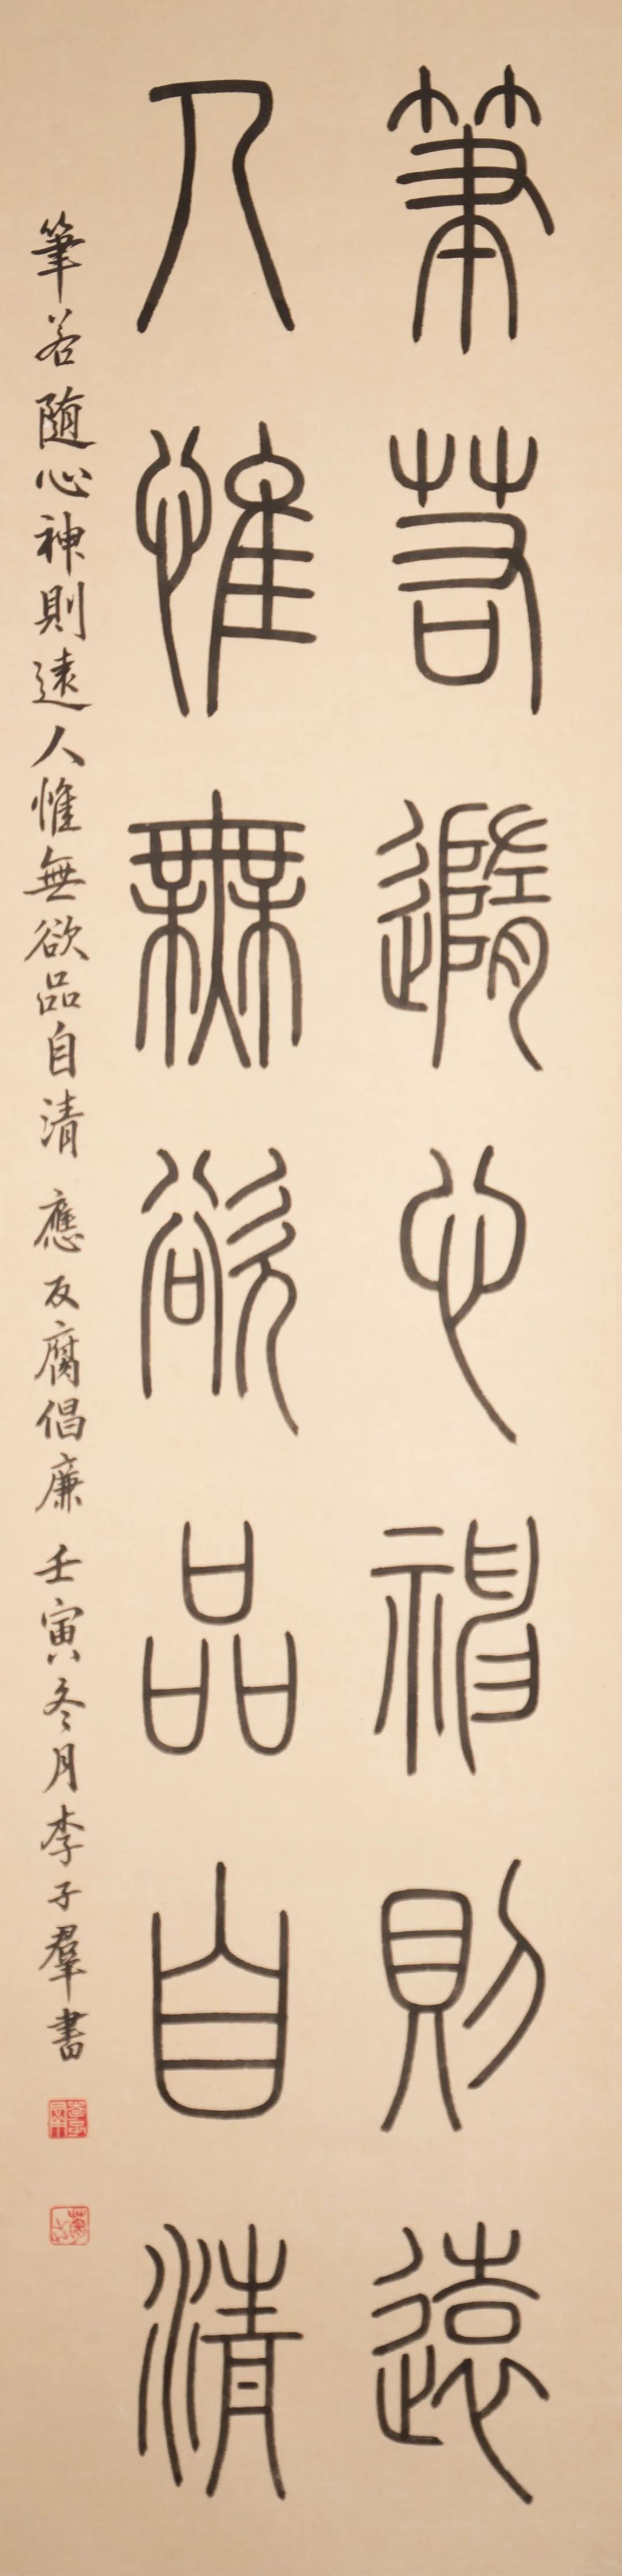 筆若隨心神則遠
人惟無欲品自清
筆若随心神則遠人惟無欲品自清 應反腐倡廉 壬寅冬月李子羣書